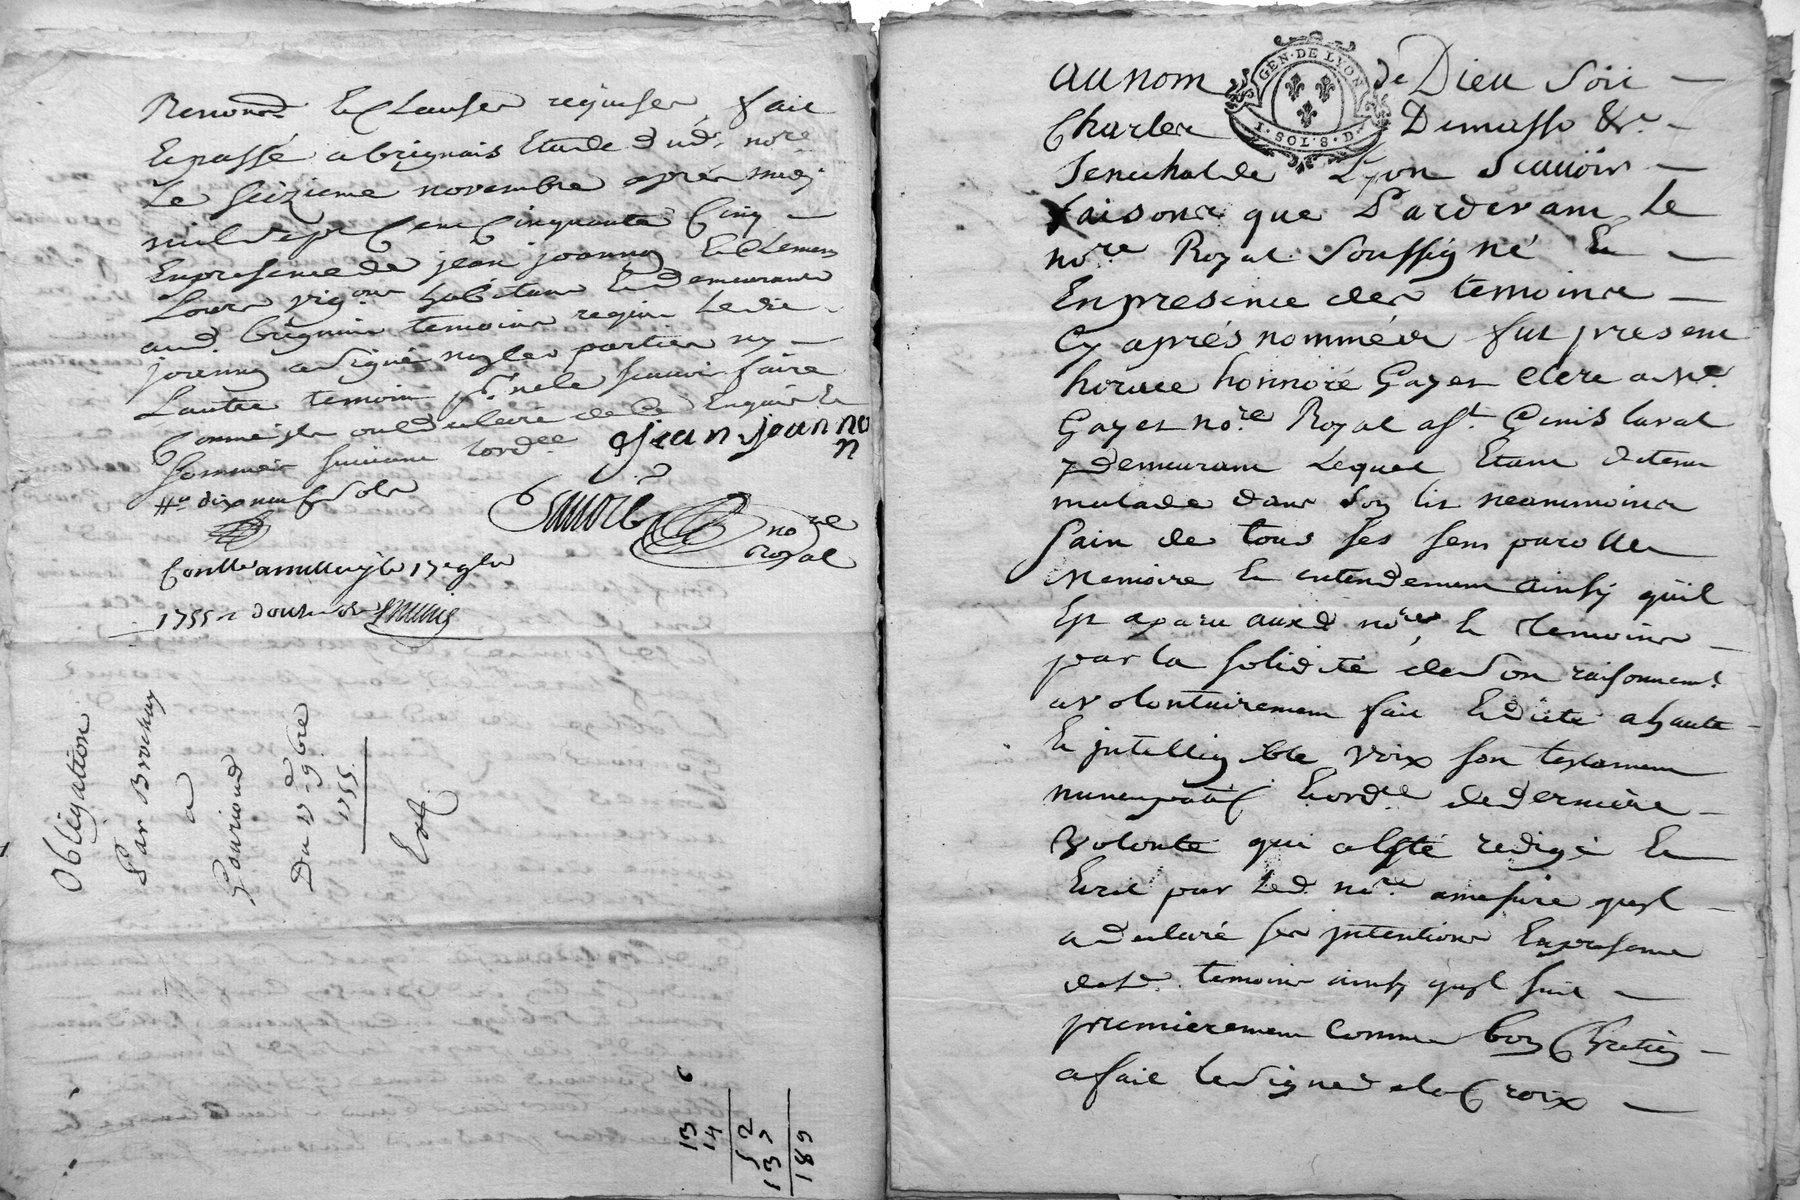 Renon^on Et Clauses requises, fait
Et passé a brignais Etude dud. no^re
Le seizieme novembre après midy
mil sept Cent Cinquante Cinq
En presence de jean joanno Et Clement
habitans Et demeurants
aud. brignais temoins requis Ledit
joanno a signé non les parties ny
Lautre temoin p^r ne le scavoir faire
Comme ils ont declaré de ce Enquis Et
sommés suivant lord^ce
jean joanno
n
dix neuf sols
no^re
Royal
le 17 9bre
1755
Obligation
Par Brochay
a
Gouriond
Du 9bre
1755
Ext
13 6
14
52
137
189
GEN · DE LYON
1 · SOL · 8 · D ·
au nom de Dieu Soit
Charles Demasso &^r
Senechal de Lyon Scavoir
faisons que Pardevant Le
no^re Royal Soussigné Et
En presence des temoins
Cy aprés nommés fut present
horace honnoré Gayet clerc a M^e
Gayet no^re Royal a S^t Genis laval
y demeurant Lequel Etant detenu
malade dans son lit neanmoins
sain de tous ses sens parolle
memoire Et entendement ainsy quil
Est aparu aux d. no^re, Et temoins
par la solidité de son raisonnement
a volontairement fait Et dicté a haute
Et intelligible voix son testament
nuncupatif Et ord^ce de derniere
volonté qui a Esté redigé Et
Ecrit par Led. no^re amesure quil
a declaré ses intentions En presence
desd. temoins ainsy quil suit
premierement comme bon Chretien
a fait le signe de la Croix